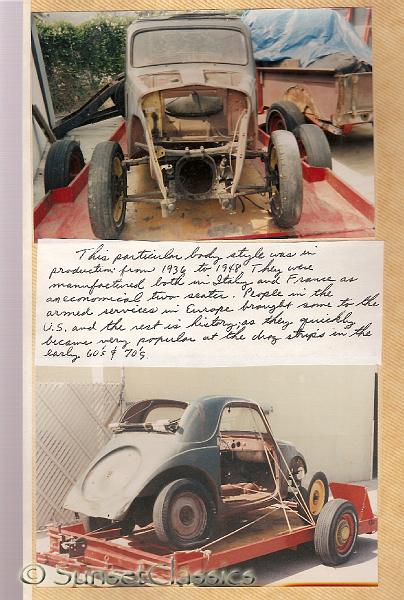 This particular body style was in
production from 1936 to 1948. They were
manufactured both in Italy and France as
an economical two seater. People in the
armed services in Europe brought some to the
U.S. and the rest is history, as they quickly
became very popular at the drag strips in the
early 60's & 70's
© SunsetClassics